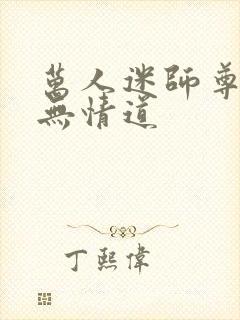 萬人迷師尊
無情道
丁熙偉